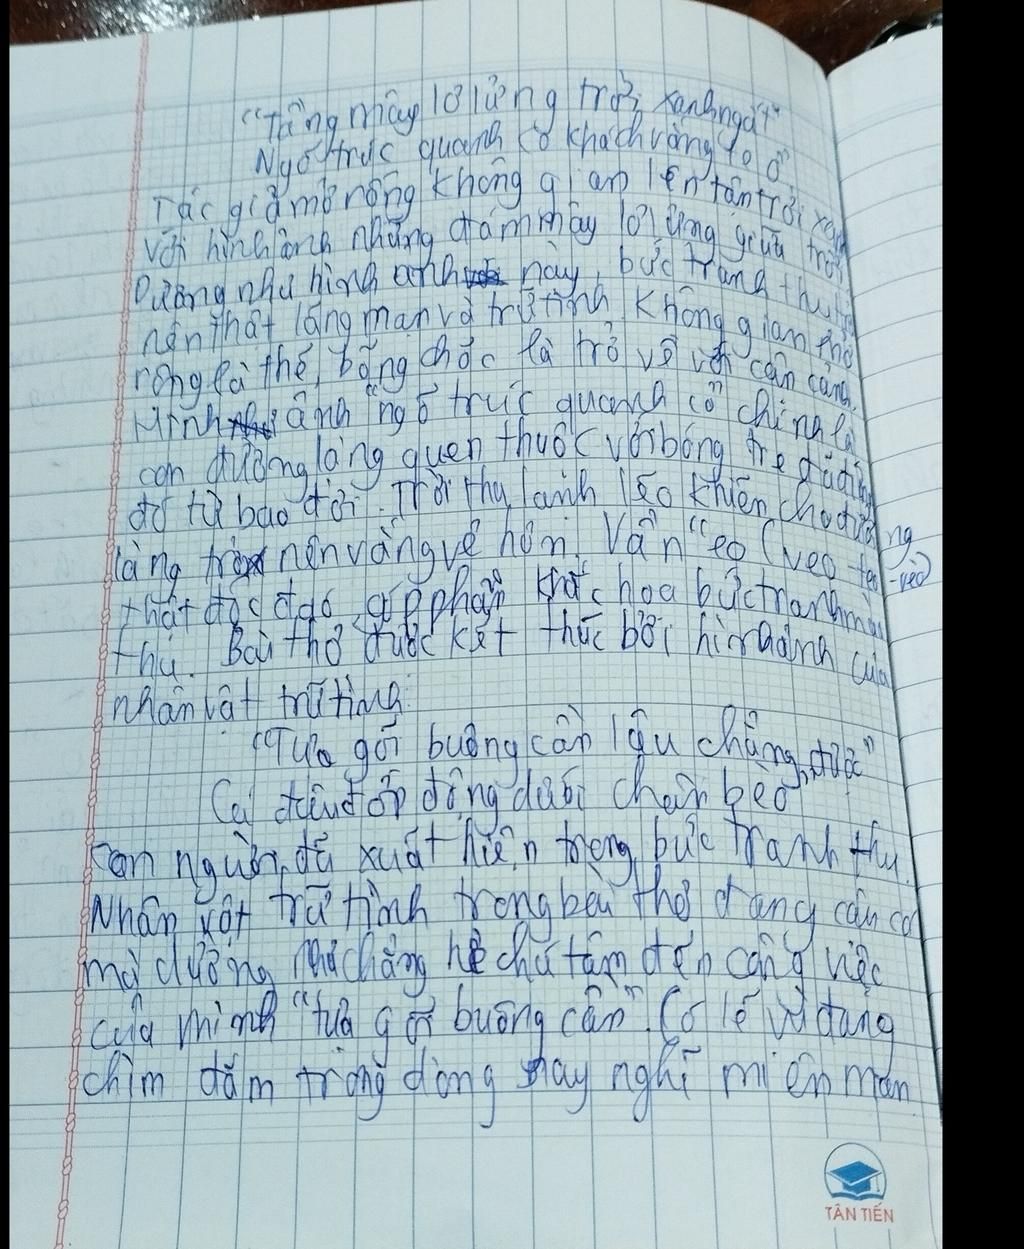 "Tầng mây lơ lửng trời xanh ngắt"
Ngõ trúc quanh co khách vắng teo
Tác giả mở rộng không gian lên tận trời xanh
với hình ảnh những đám mây lơ lửng giữa trời
Dường như hình ảnh này, bức tranh thu trở
nên thật lãng mạn và trữ tình. Không gian thơ
rộng là thế, bỗng chốc lại trở về với cận cảnh.
Hình ảnh "ngõ trúc quanh co" chính là
con đường làng quen thuộc với bóng tre
đó từ bao đời. Trời thu lành lẽo khiến cho đường
làng trở nên vắng vẻ hơn. Vần "eo" (veo - teo - vèo)
thật độc đáo góp phần khắc họa bức tranh mùa
thu. Bài thơ được kết thúc bởi hình ảnh của
nhân vật trữ tình:
"Tựa gối buông cần lâu chẳng được"
Cá đâu đớp động dưới chân bèo"
Con người đã xuất hiện trong bức tranh thu.
Nhân vật trữ tình trong bài thơ đang câu cá
mà dường như chẳng hề chú tâm đến công việc
của mình "tựa gối buông cần". Có lẽ vì đang
chìm đắm trong dòng suy nghĩ miên man
TÂN TIẾN